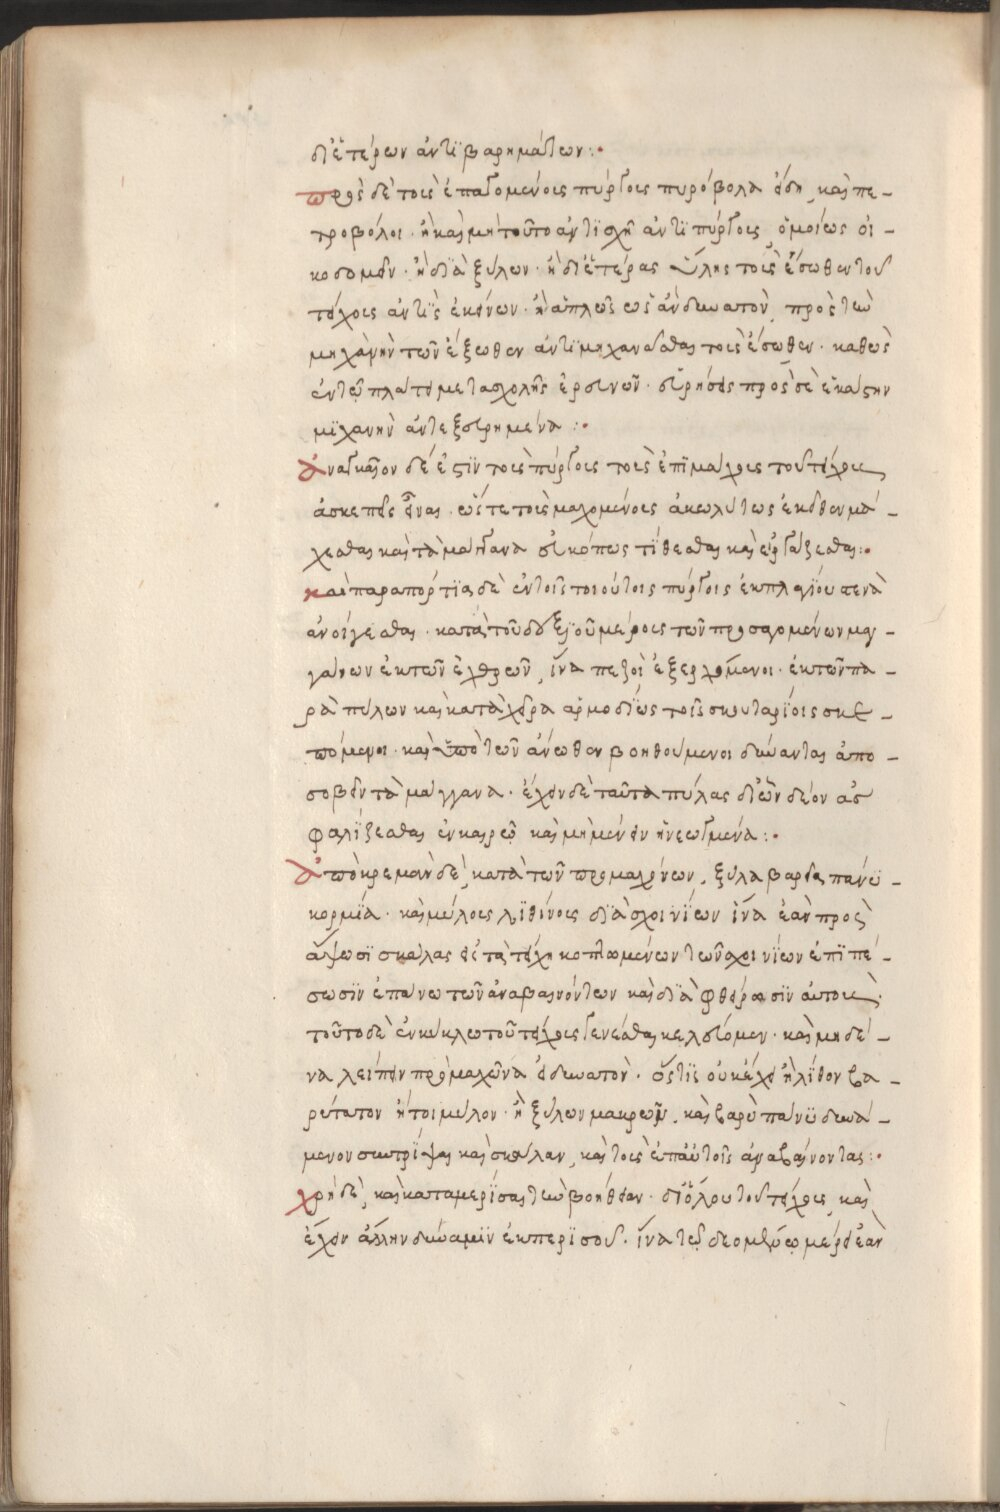 δι' ἑτέρων ἀντιβαρημάτων:·
πρὸς δὲ τοὺς ἐπαγομένους πύργους πυρόβολα εἴδη, καὶ πε-
τροβόλοι. ἢ καὶ μὴ τοῦτο ἀντισχῆ ἀντιπύργους ὁμοίως οἰ-
κοδομεῖν. ἢ διὰ ξύλων. ἢ δι' ἑτέρας ὕλης τοὺς ἔσωθεν τοῦ
τείχους ἀντὶς ἐκείνων. ἢ ἁπλῶς ὡς ἂν δυνατὸν, πρὸς τὴν
μηχανὴν τῶν ἔξωθεν ἀντιμηχανᾶσθαι τοὺς ἔσωθεν. καθὼς
ἐν τῷ πλάτει μετασχολῆς ἐρευνῶν. εὑρήσεις πρὸς σὲ ἑκάστην
μϊχανὴν ἀντεξευρημένα:·
Ἀναγκαῖον δέ ἐστϊν τοὺς πύργους τοὺς ἐπϊμάχους τοῦ τείχους
ἀσκεπεῖς εἶναι. ὥστε τοὺς μαχομένους ἀκωλύτως ἐκεῖθεν μά-
χεσθαι καὶ τὰ μάγγανα εὐκόπως τίθεσθαι καὶ ἐργάζεσθαι:·
καὶ παραπόρτϊα δὲ ἐν τοῖς τοιούτοις πύργοις ἐκ πλαγίου στενὰ
ἀνοίγεσθαι. κατὰ τοῦ δεξιοῦ μέρους τῶν προσαγομένων μαγ-
γάνων ἐκ τῶν ἐχθρῶν, ἵνα πεζοὶ ἐξερχόμενοι. ἐκ τῶν πα-
ρὰ πύλων καὶ κατὰ χεῖρα ἁρμοδίως τοῖς σκουταρίοις σκε-
πόμενοι. καὶ ὑπὸ τῶν ἄνωθεν βοηθούμενοι δύνανται ἀπο-
σοβεῖν τὰ μάγγανα. ἔχειν δὲ ταῦτα πύλας δι' ὧν δέον ἀσ
φαλίζεσθαι ἐν καιρῷ καὶ μὴ μένειν ἠνεωγμένα:·
Ἀπὸκρεμᾶν δὲ, κατὰ τῶν προμαχόνων, ξύλα βαρέα πάνυ-
κορμία. καὶ μύλους λϊθίνους διὰ σχοινίων ἵνα ἐὰν προσ
άψωσϊ σκάλας εἰς τὰ τείχη κοπτομένων τῶν σχοινίων ἐπϊπέ-
σωσϊν ἐπάνω τῶν ἀναβαινόντων καὶ διὰ φθείρωσϊν αὐτοὺς·
τοῦτο δὲ ἐν κύκλω τοῦ τείχους γενέσθαι κελεύομεν. καὶ μηδέ-
να λείπειν προμαχῶνα εἰ δυνατὸν. ὅστις οὐκ ἔχει ἢ λίθον βα-
ρύτατον ἤτοι μύλον. ἢ ξύλων μακρὼν, καὶ βαρὺ πάνυ δυνά-
μενον συντρίψαι καὶ σκάλαν, καὶ τοὺς ἐπ' αὐτοῖς ἀναβαίνοντας:·
χρὴ δὲ, καὶ καταμερίσαι τὴν βοήθειαν. δι' ὅλου τοῦ τείχους καὶ
ἔχειν ἄλλην δύναμϊν ἐκ περισσοῦ. ἵνα τῷ δεομένῳ μέρει ἐὰν